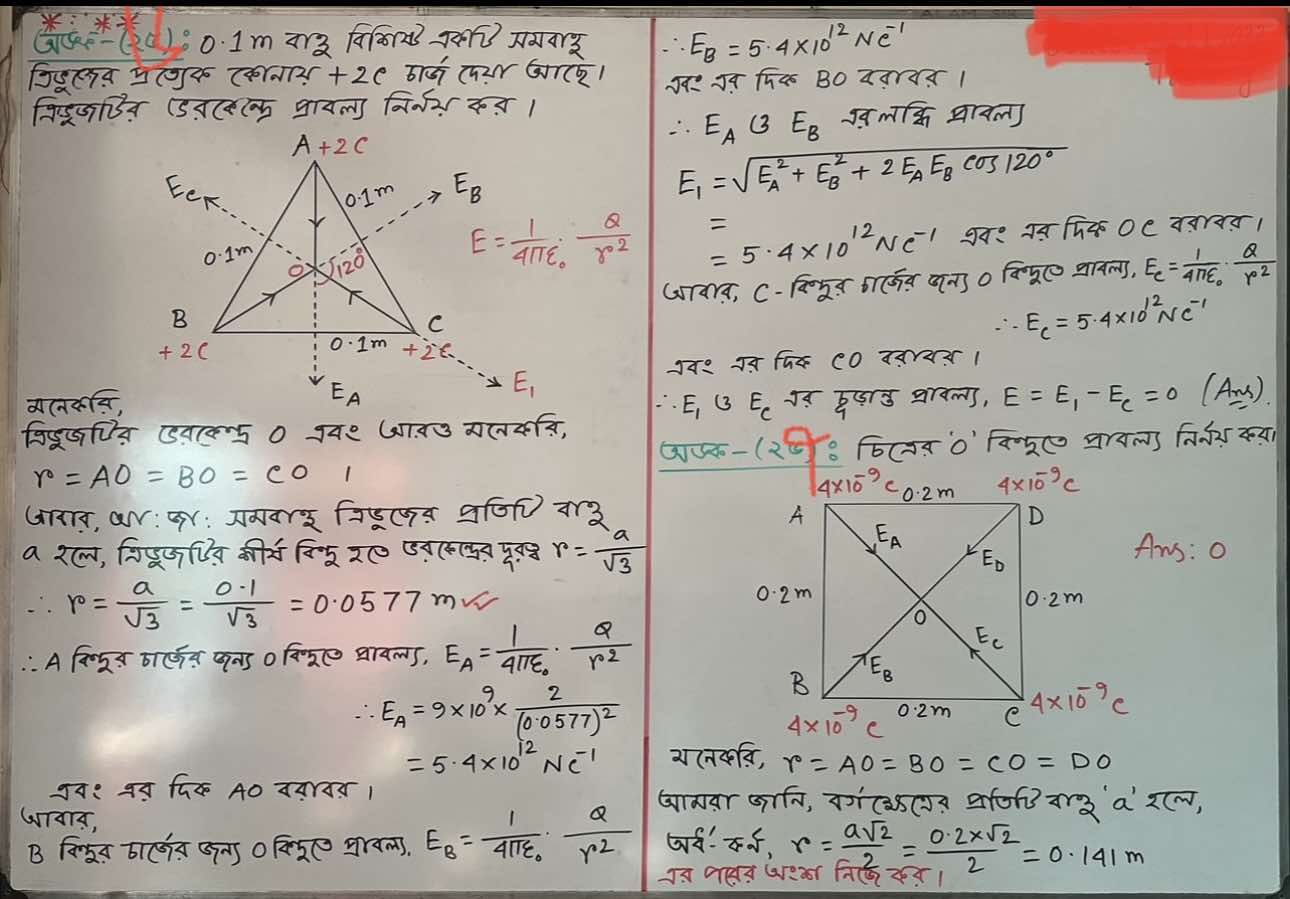 অংক-(২৫): 0.1m বাহু বিশিষ্ট একটি সমবাহু
ত্রিভুজের প্রত্যেক কোনায় +2C চার্জ দেয়া আছে।
ত্রিভুজটির ভরকেন্দ্রে প্রাবল্য নির্নয় কর।
A +2C
E_C
0.1m
E_B
0.1m
E = 1/4πε₀ · Q/r²
O 120°
B
C
+2C
0.1m
+2C
E₁
E_A
মনেকরি,
ত্রিভুজটির ভরকেন্দ্র O এবং আরও মনেকরি,
r = AO = BO = CO ।
আবার, আ: জা: সমবাহু ত্রিভুজের প্রতিটি বাহু
a হলে, ত্রিভুজটির শীর্ষ বিন্দু হতে ভরকেন্দ্রের দূরত্ব r = a/√3
∴ r = a/√3 = 0.1/√3 = 0.0577 m
∴ A বিন্দুর চার্জের জন্য O বিন্দুতে প্রাবল্য, E_A = 1/4πε₀ · Q/r²
∴ E_A = 9×10⁹ × 2/(0.0577)²
= 5.4×10¹² NC⁻¹
এবং এর দিক AO বরাবর।
আবার,
B বিন্দুর চার্জের জন্য O বিন্দুতে প্রাবল্য, E_B = 1/4πε₀ · Q/r²
∴ E_B = 5.4×10¹² NC⁻¹
এবং এর দিক BO বরাবর।
∴ E_A ও E_B এর লব্ধি প্রাবল্য
E₁ = √(E_A² + E_B² + 2E_A E_B cos 120°)
=
= 5.4×10¹² NC⁻¹ এবং এর দিক OC বরাবর।
আবার, C-বিন্দুর চার্জের জন্য O বিন্দুতে প্রাবল্য, E_C = 1/4πε₀ · Q/r²
∴ E_C = 5.4×10¹² NC⁻¹
এবং এর দিক CO বরাবর।
∴ E₁ ও E_C এর চূড়ান্ত প্রাবল্য, E = E₁ - E_C = 0 (Ans).
অংক-(২৬): চিত্রের 'O' বিন্দুতে প্রাবল্য নির্নয় কর।
4×10⁻⁹C 0.2m 4×10⁻⁹C
A
D
E_A
E_D
Ans: 0
0.2m
0.2m
O
E_C
E_B
B
C
4×10⁻⁹C
0.2m
4×10⁻⁹C
মনেকরি, r = AO = BO = CO = DO
আমরা জানি, বর্গক্ষেত্রের প্রতিটি বাহু 'a' হলে,
অর্ধ-কর্ন, r = a√2/2 = 0.2×√2/2 = 0.141 m
এর পরের অংশ নিজে কর।